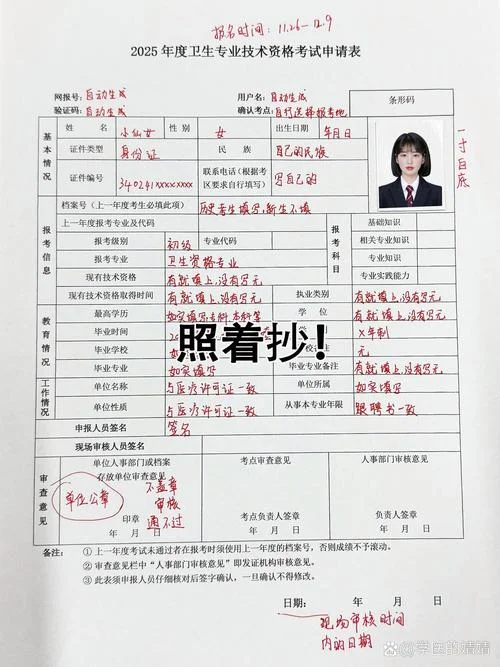 报名时间：11.26-12.9
2025 年度卫生专业技术资格考试申请表
网报号：自动生成 用户名：自动生成
验证码：自动生成 确认考点：自行选择报考地
条形码
基本情况
姓名 小仙女 性别 女 出生日期 年月日
证件类型 身份证 民族 自己的民族
证件编号 340241xxxxxxxx 联系电话（根据考区要求自行填写） 写自己的
一寸白底
档案号（上一年度考生必填此项） 历史考生填写,新生不填
报考信息
上一年度报考专业及代码
报考级别 初级 专业代码
报考专业 卫生资格专业
现有技术资格 有就填上,没有写无
现有技术资格取得时间 有就填上,没有写无
报考科目
基础知识
相关专业知识
专业知识
专业实践能力
执业类别 有就填上,没有写无
教育情况
最高学历 如实填写专科,本科等 学位 有就填上,没有写无
毕业时间 20 X年制
毕业学校 如 无
毕业专业 如实填写 毕业专业备注 有就填上,没有写无
照着抄！
工作情况
单位名称 与医疗许可证一致 单位所属 如实填写
单位性质 与医疗许可证一致 从事本专业年限 跟聘书一致
申报人员签名 签名
现场审核人员签名
审查意见
单位人事部门或档案存放单位审查意见
单位公章
不盖章
审核
通不过
印章
年 月 日
考点审查意见
考点负责人签章
年 月 日
人事部门审核意见
考区负责人签章
年 月 日
备注：①上一年度考试未通过者在报考时须使用上一年度的档案号，否则成绩不予滚动。
②审查意见栏中“人事部门审核意见”即发证机构审核意见。
③此表须申报人员仔细核对后签字确认，一旦确认不得修改。
日期： 年 月 日
现场审核时间
内的日期
学医的婧婧